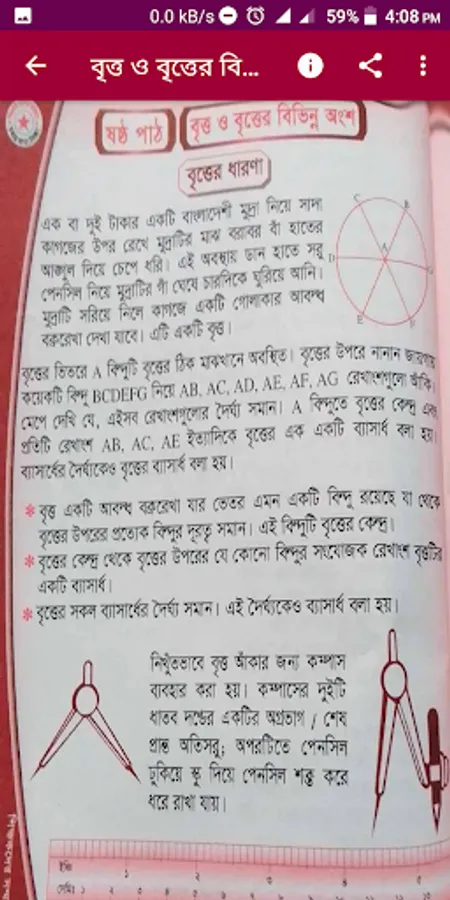 0.0 kB/s 59% 4:08 PM
বৃত্ত ও বৃত্তের বি...
ষষ্ঠ পাঠ
বৃত্ত ও বৃত্তের বিভিন্ন অংশ
বৃত্তের ধারণা
এক বা দুই টাকার একটি বাংলাদেশী মুদ্রা নিয়ে সাদা
কাগজের উপর রেখে মুদ্রাটির মাঝ বরাবর বাঁ হাতের
আঙ্গুল দিয়ে চেপে ধরি। এই অবস্থায় ডান হাতে সরু
পেনসিল নিয়ে মুদ্রাটির গাঁ ঘেষে চারদিকে ঘুরিয়ে আনি।
মুদ্রাটি সরিয়ে নিলে কাগজে একটি গোলাকার আবদ্ধ
বক্ররেখা দেখা যাবে। এটি একটি বৃত্ত।
C
B
A
D
G
E
F
বৃত্তের ভিতরে A বিন্দুটি বৃত্তের ঠিক মাঝখানে অবস্থিত। বৃত্তের উপরে নানান জায়গায়
কয়েকটি বিন্দু BCDEFG নিয়ে AB, AC, AD, AE, AF, AG রেখাংশগুলো আঁকি।
মেপে দেখি যে, এইসব রেখাংশগুলোর দৈর্ঘ্য সমান। A বিন্দুতে বৃত্তের কেন্দ্র এবং
প্রতিটি রেখাংশ AB, AC, AE ইত্যাদিকে বৃত্তের এক একটি ব্যাসার্ধ বলা হয়।
ব্যাসার্ধের দৈর্ঘ্যকেও বৃত্তের ব্যাসার্ধ বলা হয়।
* বৃত্ত একটি আবদ্ধ বক্ররেখা যার ভেতর এমন একটি বিন্দু রয়েছে যা থেকে
বৃত্তের উপরের প্রত্যেক বিন্দুর দূরত্ব সমান। এই বিন্দুটি বৃত্তের কেন্দ্র।
* বৃত্তের কেন্দ্র থেকে বৃত্তের উপরের যে কোনো বিন্দুর সংযোজক রেখাংশ বৃত্তটির
একটি ব্যাসার্ধ।
* বৃত্তের সকল ব্যাসার্ধের দৈর্ঘ্য সমান। এই দৈর্ঘ্যকেও ব্যাসার্ধ বলা হয়।
নিখুঁতভাবে বৃত্ত আঁকার জন্য কম্পাস
ব্যবহার করা হয়। কম্পাসের দুইটি
ধাতব দন্ডের একটির অগ্রভাগ / শেষ
প্রান্ত অতিসরু; অপরটিতে পেনসিল
ঢুকিয়ে স্ক্রু দিয়ে পেনসিল শক্ত করে
ধরে রাখা যায়।
ইঞ্চি ১ ২ ৩ ৪ ৫
সেমিঃ ১ ২ ৩